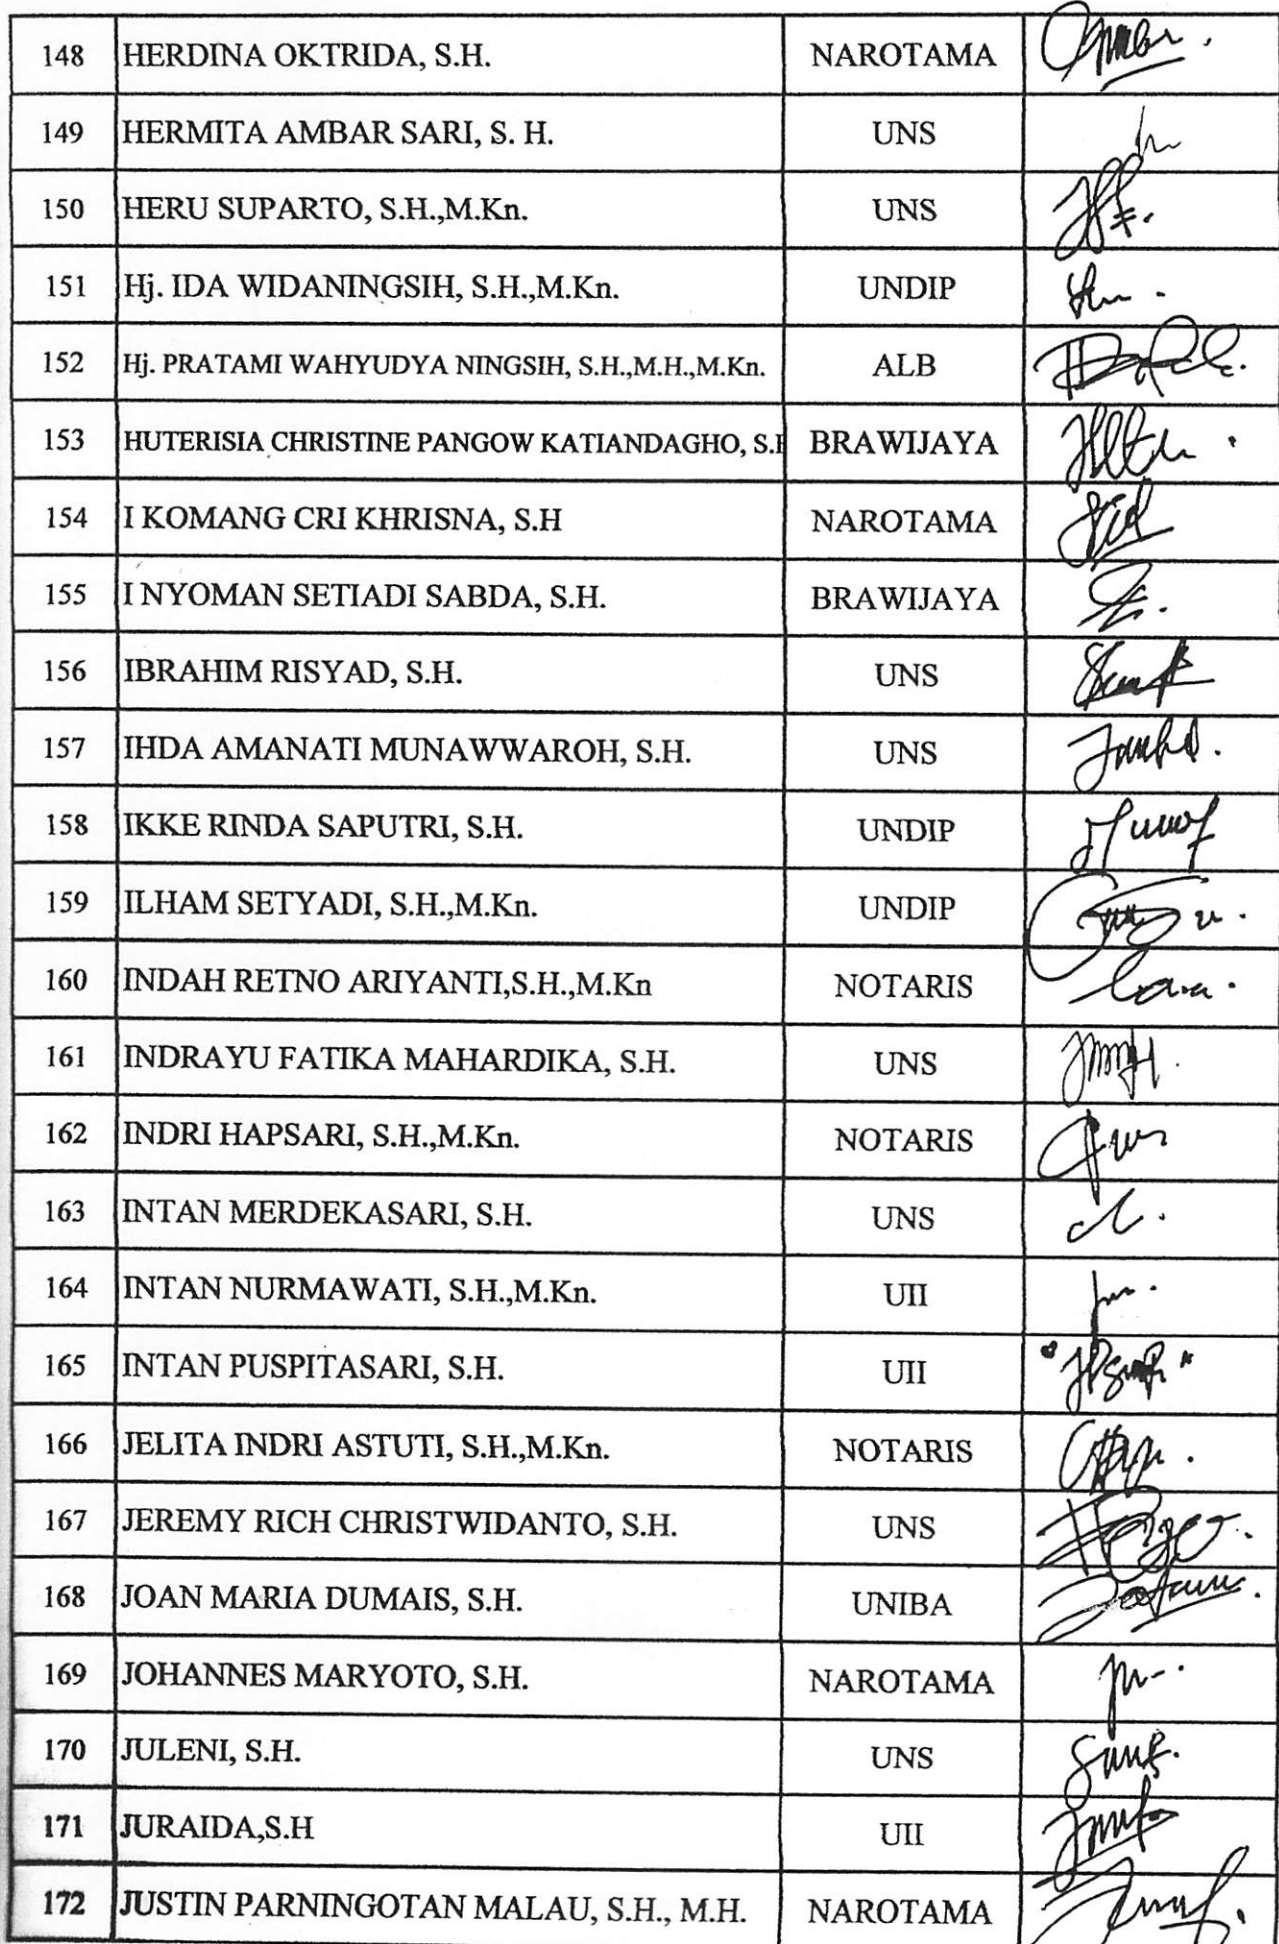 148 HERDINA OKTRIDA, S.H. NAROTAMA
149 HERMITA AMBAR SARI, S. H. UNS
150 HERU SUPARTO, S.H.,M.Kn. UNS
151 Hj. IDA WIDANINGSIH, S.H.,M.Kn. UNDIP
152 Hj. PRATAMI WAHYUDYA NINGSIH, S.H.,M.H.,M.Kn. ALB
153 HUTERISIA CHRISTINE PANGOW KATIANDAGHO, S.H BRAWIJAYA
154 I KOMANG CRI KHRISNA, S.H NAROTAMA
155 I NYOMAN SETIADI SABDA, S.H. BRAWIJAYA
156 IBRAHIM RISYAD, S.H. UNS
157 IHDA AMANATI MUNAWWAROH, S.H. UNS
158 IKKE RINDA SAPUTRI, S.H. UNDIP
159 ILHAM SETYADI, S.H.,M.Kn. UNDIP
160 INDAH RETNO ARIYANTI,S.H.,M.Kn NOTARIS
161 INDRAYU FATIKA MAHARDIKA, S.H. UNS
162 INDRI HAPSARI, S.H.,M.Kn. NOTARIS
163 INTAN MERDEKASARI, S.H. UNS
164 INTAN NURMAWATI, S.H.,M.Kn. UII
165 INTAN PUSPITASARI, S.H. UII
166 JELITA INDRI ASTUTI, S.H.,M.Kn. NOTARIS
167 JEREMY RICH CHRISTWIDANTO, S.H. UNS
168 JOAN MARIA DUMAIS, S.H. UNIBA
169 JOHANNES MARYOTO, S.H. NAROTAMA
170 JULENI, S.H. UNS
171 JURAIDA,S.H UII
172 JUSTIN PARNINGOTAN MALAU, S.H., M.H. NAROTAMA